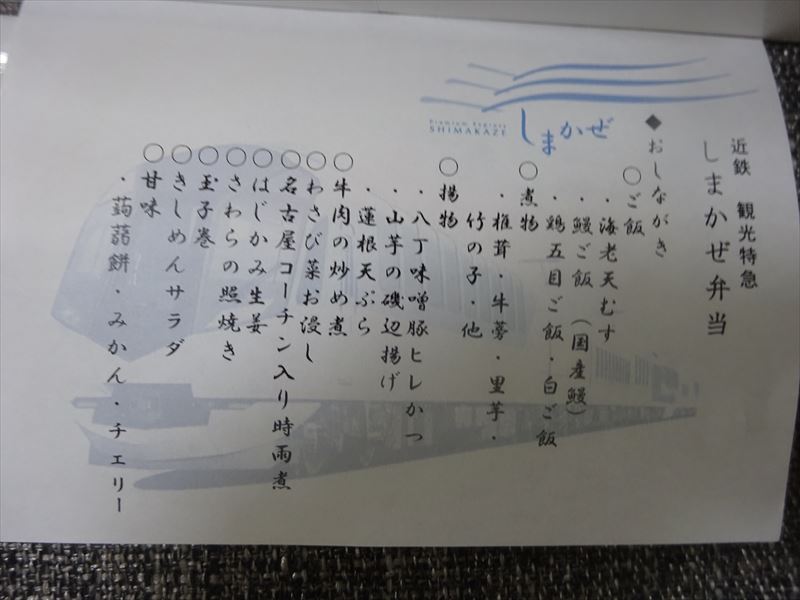 近鉄 観光特急
しまかぜ弁当
しまかぜ
Premium Express
SHIMAKAZE
◆おしながき
〇ご飯
・海老天むす
・鰻ご飯（国産鰻）
・鶏五目ご飯・白ご飯
〇煮物
・椎茸・牛蒡・里芋・
竹の子・他
〇揚物
・八丁味噌豚ヒレかつ
・山芋の磯辺揚げ
・蓮根天ぷら
〇牛肉の炒め煮
〇わさび菜お浸し
〇名古屋コーチン入り時雨煮
〇はじかみ生姜
〇さわらの照焼き
〇玉子巻
〇きしめんサラダ
〇甘味
・蒟蒻餅・みかん・チェリー